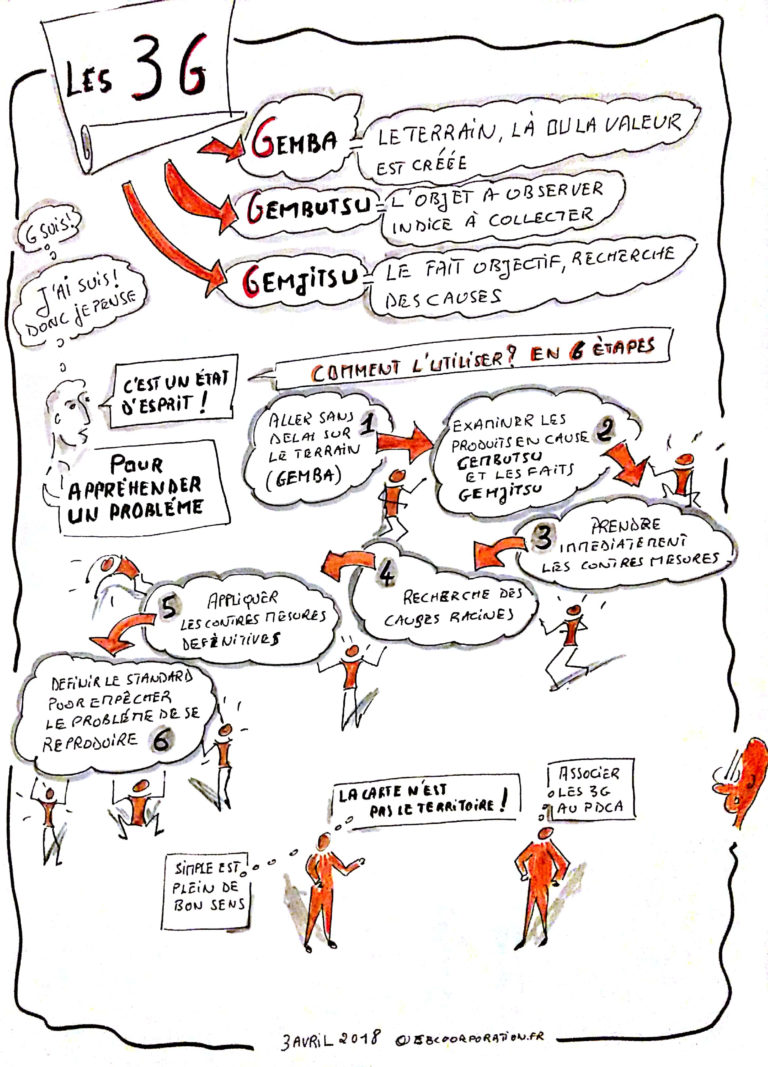 LES 3G
GEMBA
LE TERRAIN, LÀ OU LA VALEUR
EST CRÉÉE
GEMBUTSU
L'OBJET A OBSERVER
INDICE À COLLECTER
GEMJITSU
LE FAIT OBJECTIF, RECHERCHE
DES CAUSES
G SUIS!
J'AI SUIS!
DONC JE PENSE
C'EST UN ÉTAT
D'ESPRIT !
POUR
APPRÉHENDER
UN PROBLÉME
COMMENT L'UTILISER? EN 6 ÈTAPES
1
ALLER SANS
DELAI SUR
LE TERRAIN
(GEMBA)
2
EXAMINER LES
PRODUITS EN CAUSE
GEMBUTSU
ET LES FAITS
GEMJITSU
3
PRENDRE
IMMEDIATEMENT
LES CONTRES MESURES
4
RECHERCHE DES
CAUSES RACINES
5
APPLIQUER
LES CONTRES MESURES
DEFÈNITIVES
DEFINIR LE STANDARD
POUR EMPÊCHER
LE PROBLÉME DE SE
REPRODUIRE 6
LA CARTE N'EST
PAS LE TERRITOIRE !
ASSOCIER
LES 3G
AU PDCA
SIMPLE EST
PLEIN DE
BON SENS
3 AVRIL 2018